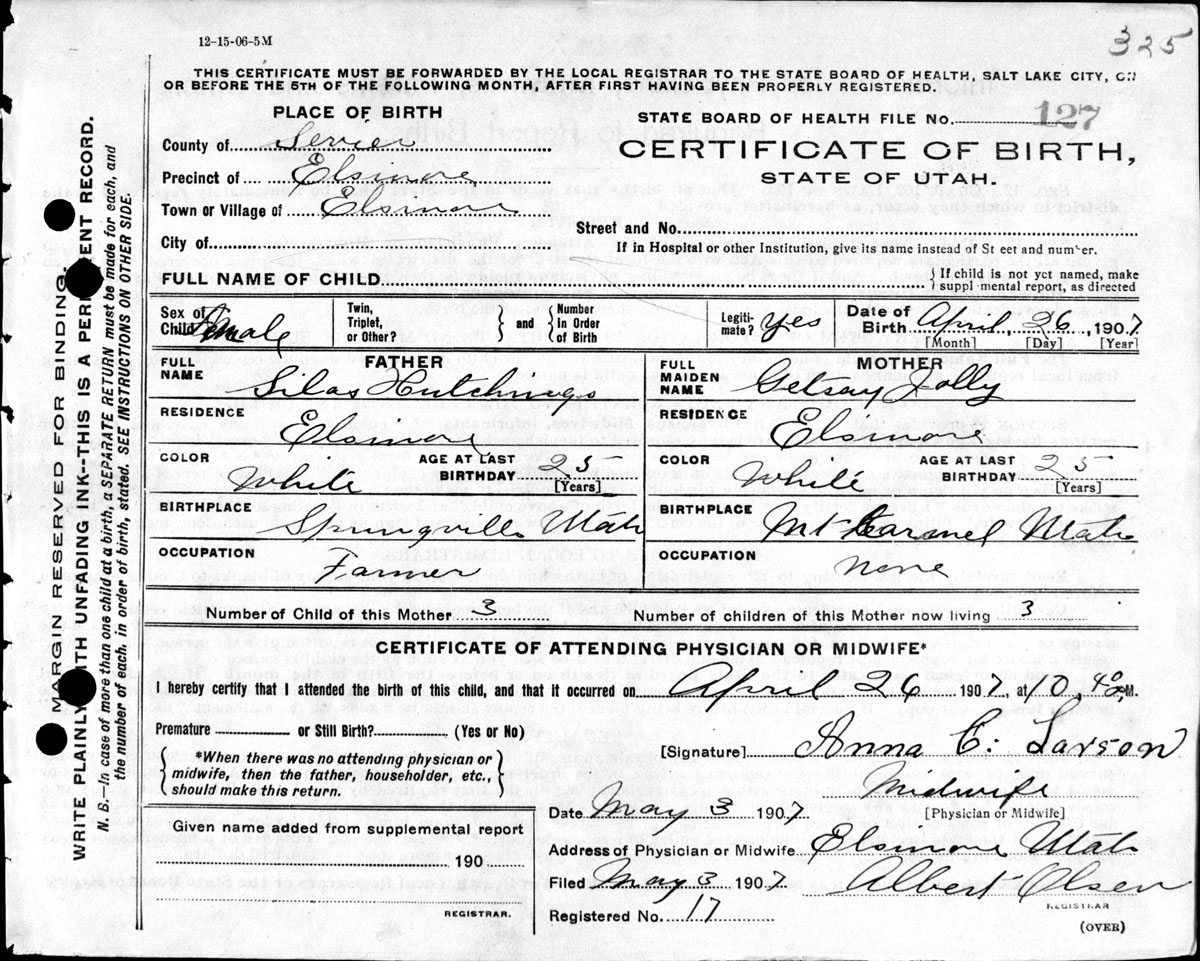 325
12-15-06-5M
THIS CERTIFICATE MUST BE FORWARDED BY THE LOCAL REGISTRAR TO THE STATE BOARD OF HEALTH, SALT LAKE CITY, ON
OR BEFORE THE 5TH OF THE FOLLOWING MONTH, AFTER FIRST HAVING BEEN PROPERLY REGISTERED.
PLACE OF BIRTH
County of Sevier
Precinct of Elsinore
Town or Village of Elsinore
City of
STATE BOARD OF HEALTH FILE No. 127
CERTIFICATE OF BIRTH,
STATE OF UTAH.
Street and No.
If in Hospital or other Institution, give its name instead of St eet and number.
FULL NAME OF CHILD
If child is not yet named, make
suppl mental report, as directed
Sex of Child Female
Twin, Triplet, or Other?
and
Number in Order of Birth
Legiti-mate? yes
Date of Birth April 26, 1907
[Month] [Day] [Year]
FATHER
FULL NAME Silas Hutchings
RESIDENCE Elsinore
COLOR White AGE AT LAST BIRTHDAY 25
[Years]
BIRTHPLACE Springville Utah
OCCUPATION Farmer
MOTHER
FULL MAIDEN NAME Jolly
RESIDENCE Elsinore
COLOR White AGE AT LAST BIRTHDAY 25
[Years]
BIRTHPLACE Mt Carmel Utah
OCCUPATION None
Number of Child of this Mother 3 Number of children of this Mother now living 3
CERTIFICATE OF ATTENDING PHYSICIAN OR MIDWIFE*
I hereby certify that I attended the birth of this child, and that it occurred on April 26 1907, at 10,40 M.
Premature or Still Birth? (Yes or No)
*When there was no attending physician or
midwife, then the father, householder, etc.,
should make this return.
Given name added from supplemental report
190
REGISTRAR.
[Signature] Anna C. Larson
Midwife
Date May 3 1907 [Physician or Midwife]
Address of Physician or Midwife Elsinore Utah
Filed May 3 1907. Albert Olsen
REGISTRAR
Registered No. 17
(OVER)
MARGIN RESERVED FOR BINDING.
WRITE PLAINLY WITH UNFADING INK--THIS IS A PERMANENT RECORD.
N. B.—In case of more than one child at a birth, a SEPARATE RETURN must be made for each, and
the number of each, in order of birth, stated. SEE INSTRUCTIONS ON OTHER SIDE.